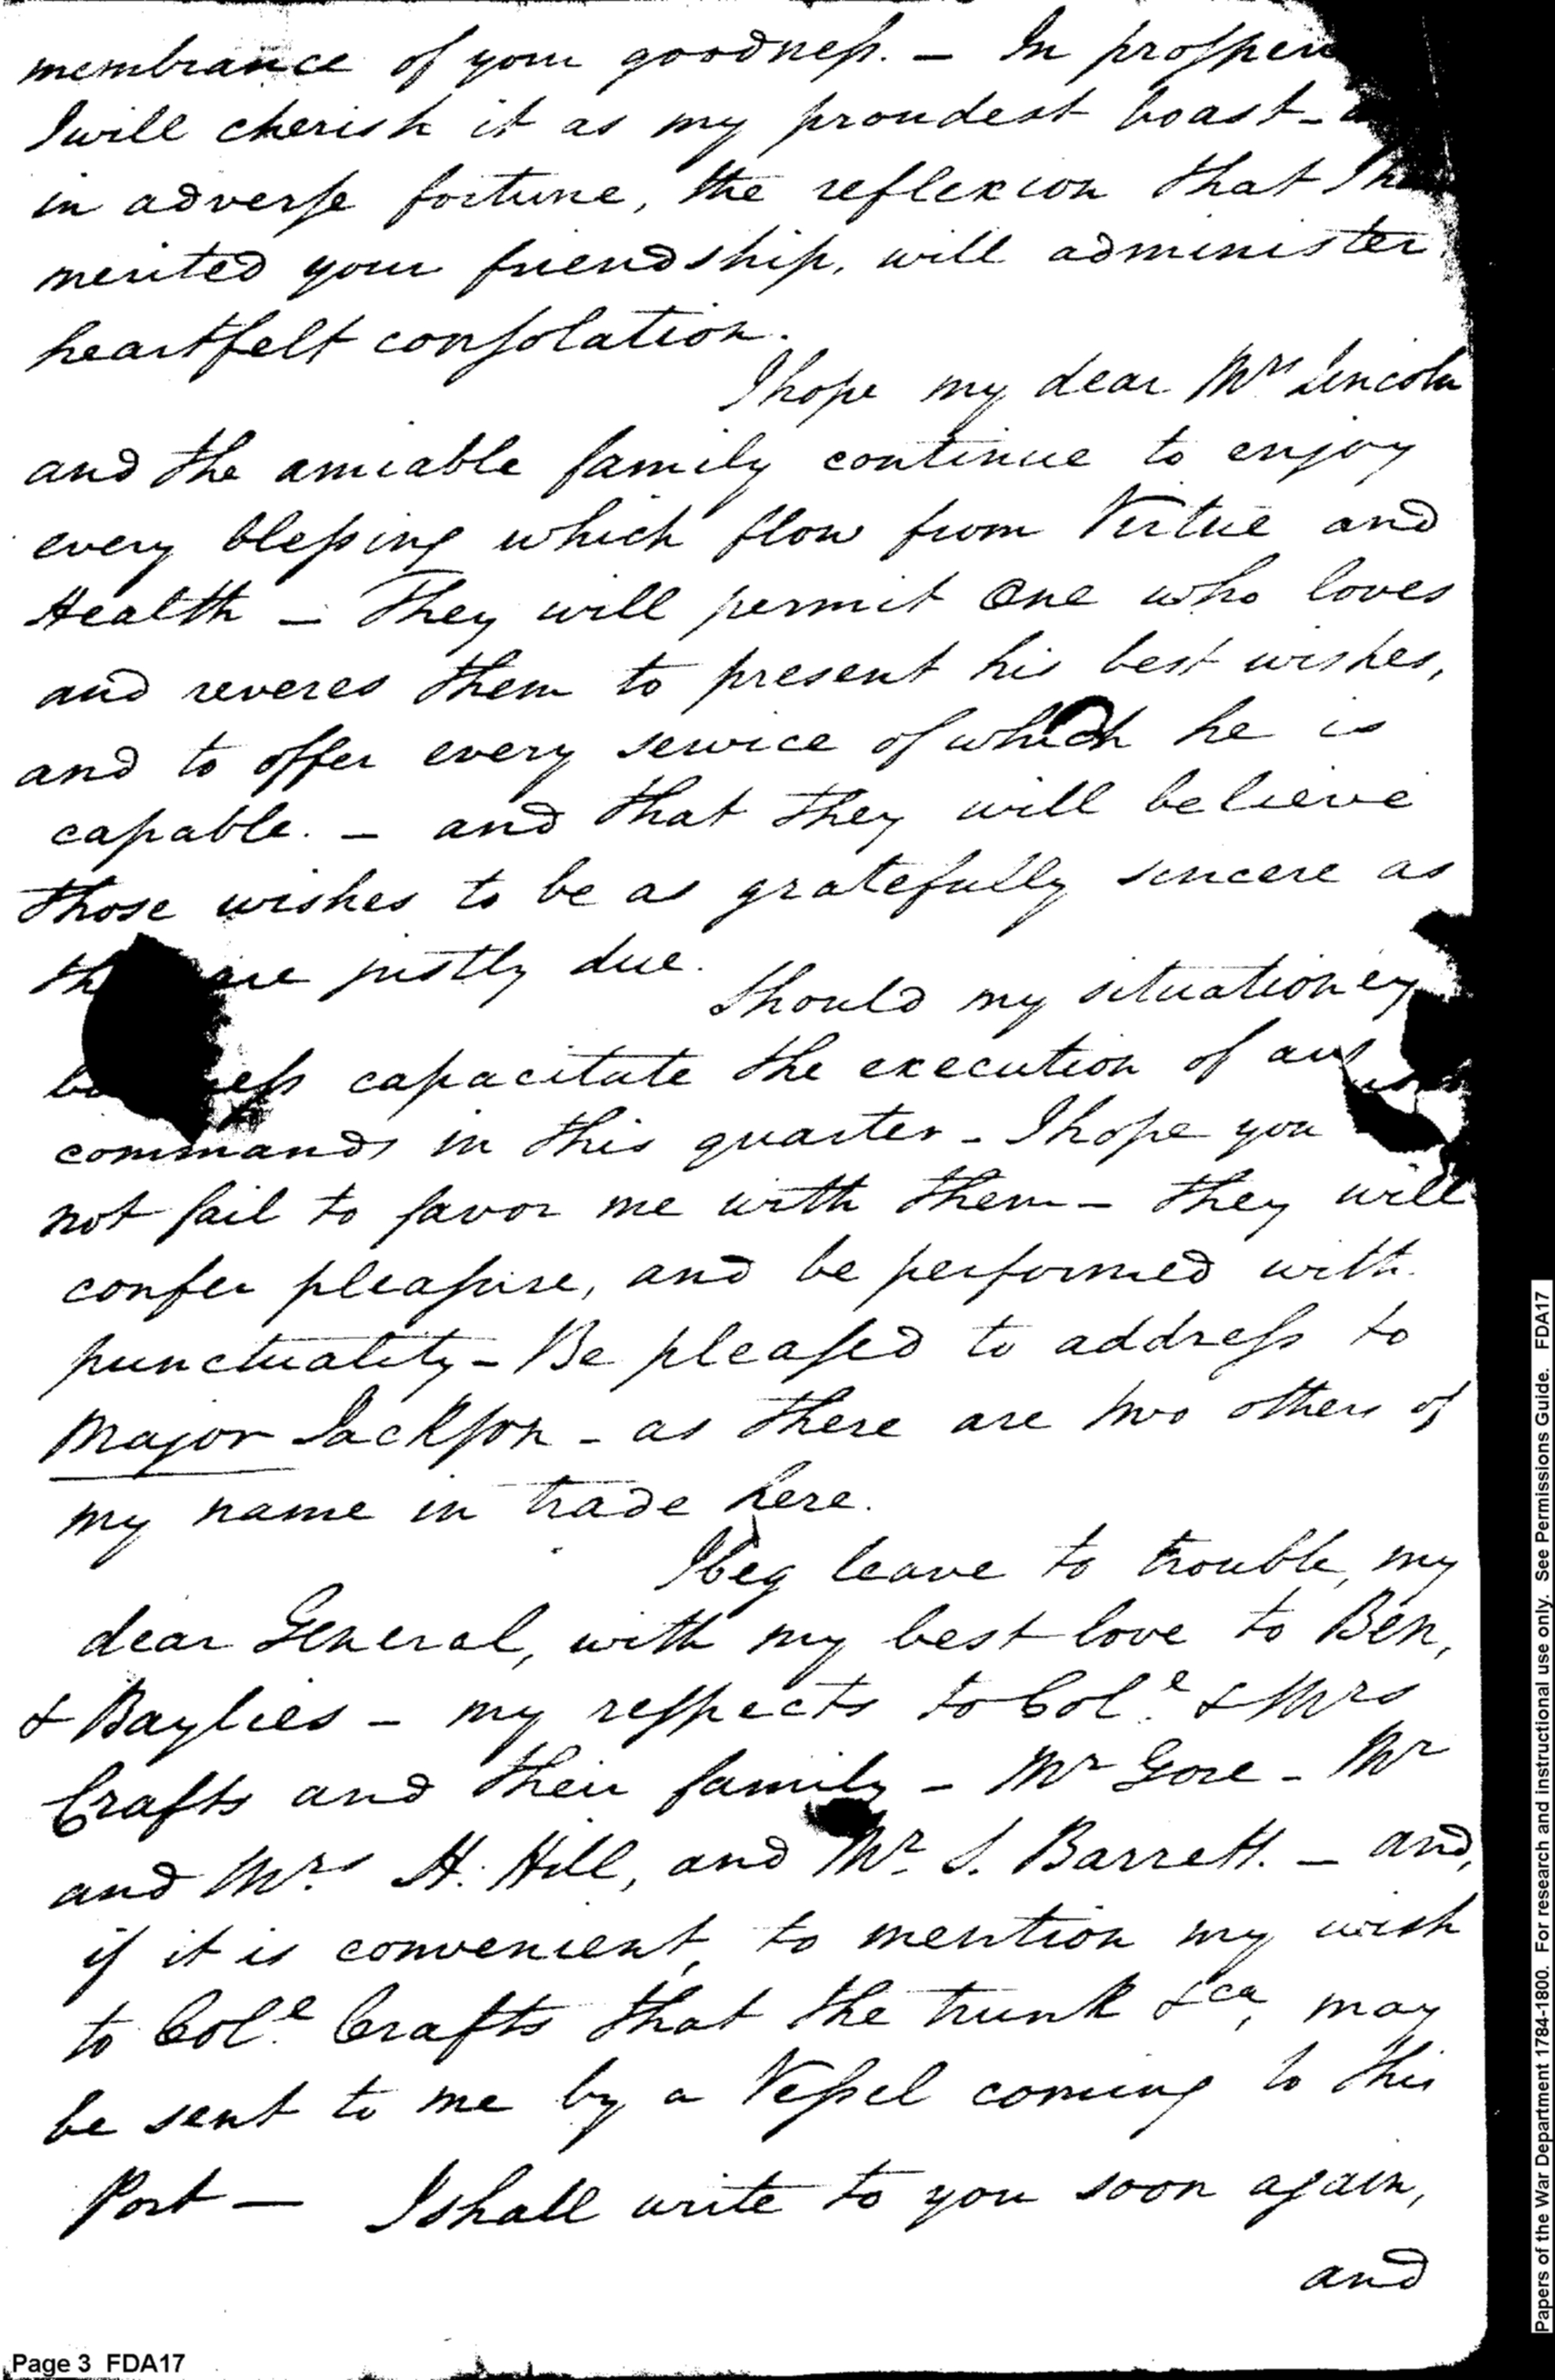 membrance of your goodneſs. – In proſper
I will cherish it as my proudest boast –
in adverſe fortune, the reflexion that I
merited your friendship, will administer
heartfelt conſolation.
I hope my dear Mrs Lincoln
and the amiable family continue to enjoy
every bleſsing which flow from Virtue and
Health – They will permit One who loves
and reveres them to present his best wishes,
and to offer every service of which he is
capable. – and that they will believe
those wishes to be as gratefully sincere as
justly due.
Should my situation
capacitate the execution of
commands in this quarter – I hope you
not fail to favor me with them – they will
confer pleaſure, and be performed with
punctuality – Be pleaſed to addreſs to
Major Jackſon – as there are two others of
my name in trade here.
I beg leave to trouble, my
dear General, with my best love to Ben,
& Baylies – my reſpects to Col.e & Mrs
Crafts and their family – Mr Gore – Mr
and Mrs H. Hill, and Mr. S. Barrett. – and,
if it is convenient, to mention my wish
to Col.e Crafts that the trunk &ca, may
be sent to me by a Veſsel coming to this
Port – I shall write to you soon again,
and
Page 3 FDA17
Papers of the War Department 1784-1800. For research and instructional use only. See Permissions Guide. FDA17